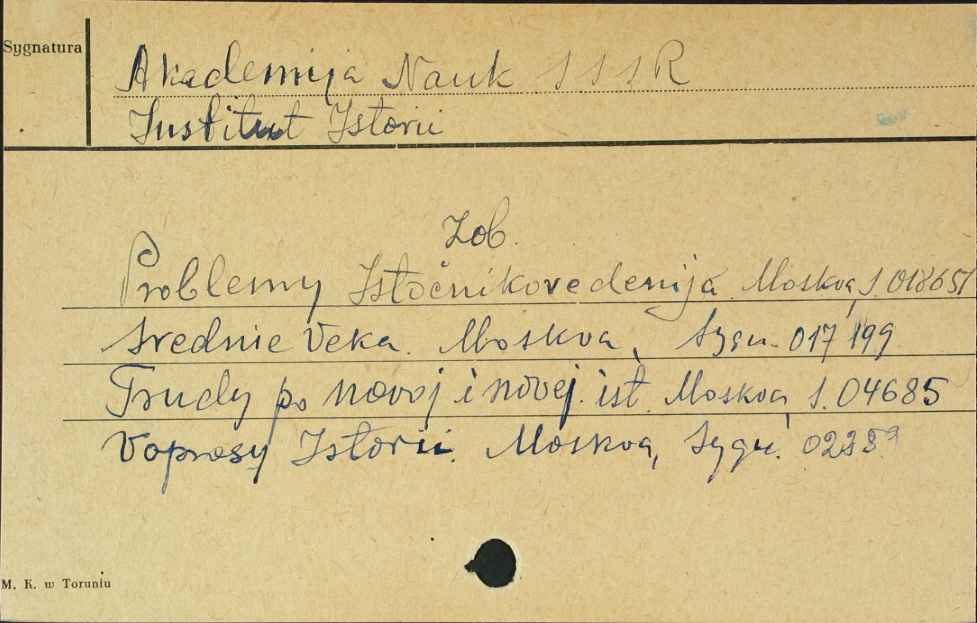 Sygnatura
Akademija Nauk SSSR
Institut Istorii
Zob.
Problemy Istočnikovedenija. Moskva, S. 018651
Srednie Veka. Moskva, Sygn. 017199
Trudy po novoj i novej. ist. Moskva, S. 04685
Voprosy Istorii. Moskva, Sygn.
M. K. w Toruniu